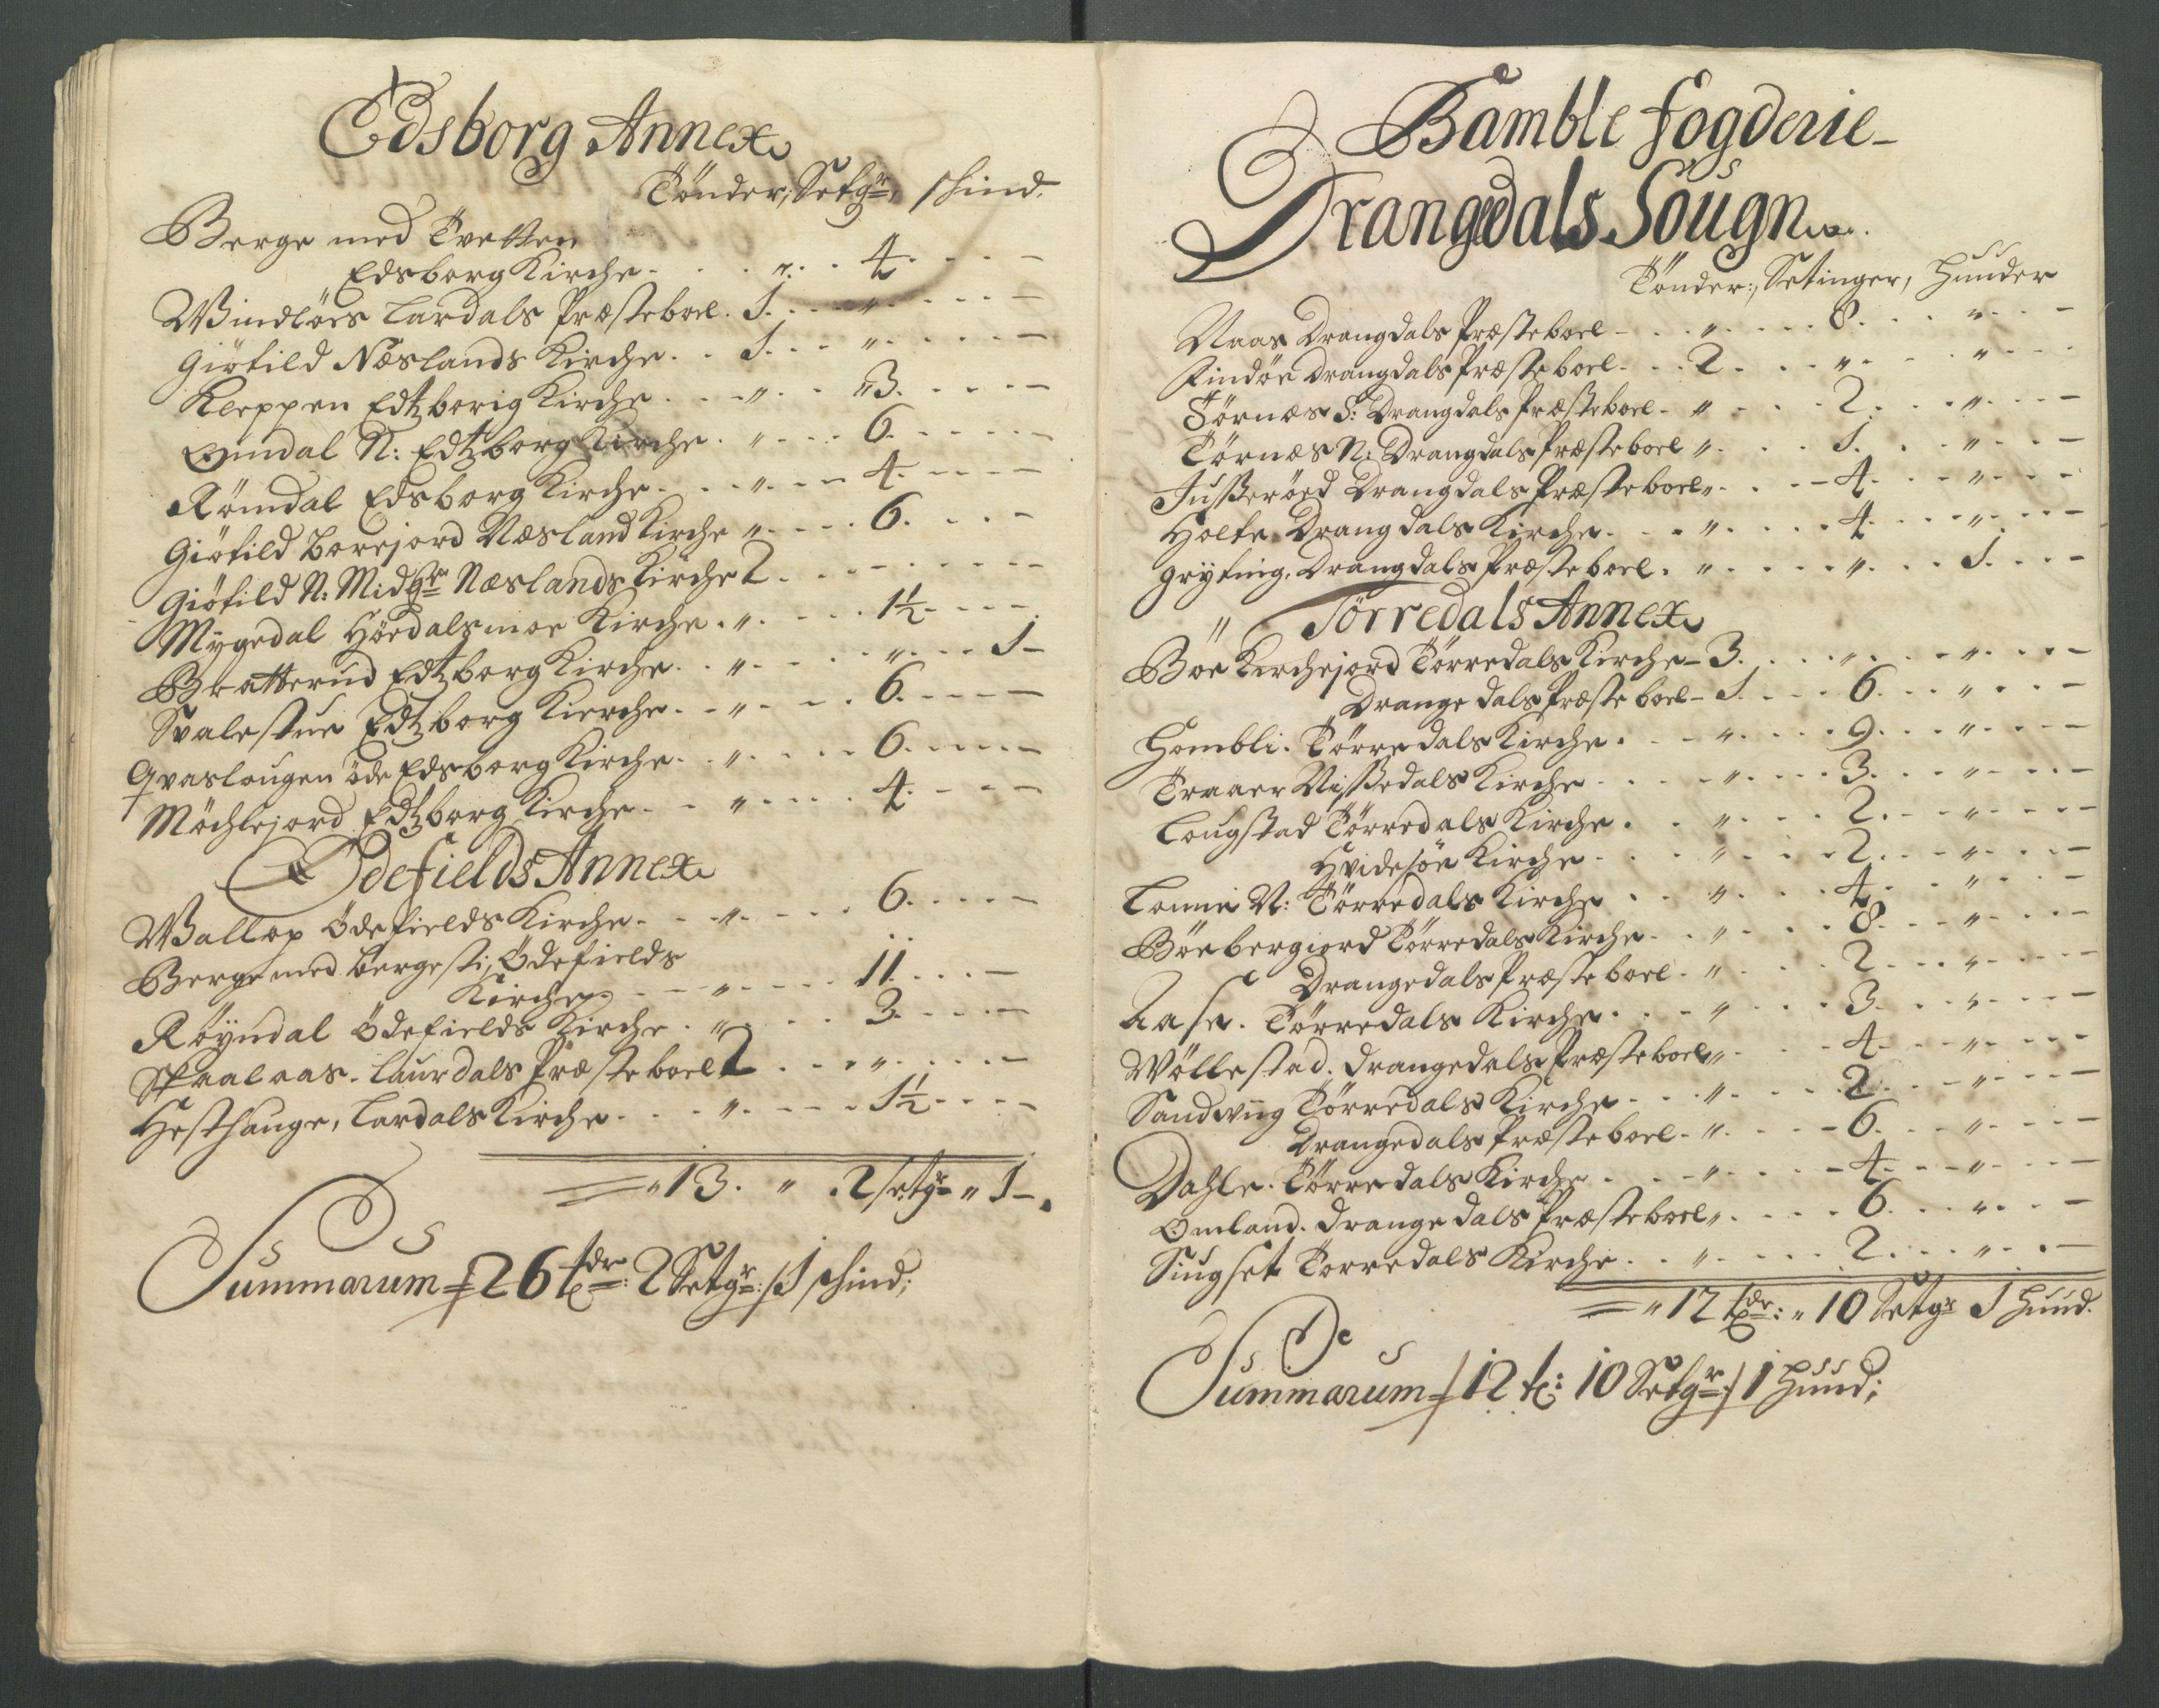 Edsborg Annex
Tönder, Setgr, skind.
Berge med Tvetten
Edsborg Kirche - . . „ . . 4. - - -
Windlöes Lardals Præsteboel. 1. . - - „ - - - -
Giöfild Næslands Kirche. . 1. . - „ - - - -
Kleppen Edtzborig Kirche. . - „ . . „3. - - -
Omdal N: Edtzborg Kirche. „ - - . 6. - - - -
Römdal Edsborg Kirche. . . „ . - - 4. - - - -
Giöfild Borejord Næsland Kirche „ - - - . 6. - - -
Giöfild N: Midgr Næslands Kirche 2. - - - - - -
Mÿgedal Höedalsmoe Kirche . „. - - - 1½ - - - -
Bratterud Edtzborg Kirche. . „ - - - „ - - - 1 -
Svalestue Edtzborg Kierche. - „ - - . 6. - - - -
Qvaslougen öde Edsborg Kirche. . „ - - - . 6. - - - -
Möchlejord Edtzborg Kirche. . „ - - - . 4. - - -
Ödefields Annex
Wallop Ödefields Kirche. - - „ - - - . 6. - - - -
Berge med bergesti, Ödefields
Kirche. - - „ - - - 11. - - -
Röyndal Ödefields Kirche. „ - - - 3. - - - -
Skaalaas. Laurdals Præsteboel 2 . . - „ - - - -
Hesthauge, Lardals Kirche. . - „ - - - . 1½ - - - -
„ 13. „ . 2 setgr „ 1 -
Summarum 26 tdr: 2 Setgr: 1 skind;
Bamble fogderie -
Drangedals Sougn
Tönder:, Setinger, Hunder
Naas Drangdals Præsteboel - . . „ - - - 8. - - „ - - -
Findöe Drangdals Præsteboel. . . 2. . . „ - - - „ - - -
Törnæs S: Drangdals Præsteboel. „ - - - 2. - - „ - - -
Törnæs N: Drangdals Præsteboel „. - - 1. . . „ - - -
Jusseröed Drangdals Præsteboel „. . - - 4. - - „ - - -
Holte Drangdals Kirche. . . „ - - - 4. - - „ - - -
Gryting. Drangdals Præsteboel. „ - - - „ - - . 1. - - -
„ Törredals Annex
Böe Kirchejord Törredals Kirche - 3. . . - „ - - - „ - - -
Drangedals Præsteboel - 1. - - - 6. - - „ - - -
Hombli. Törredals Kirche. . - „ - - - 9. - - „ - - -
Traaer Nissedals Kirche - - - „ - - - 3. - - „ - - -
Lougstad Törredals Kirche. . „ - - - 2. - - „ - - -
Hvidesöe Kirche - . . „ - - - 2. - - „ - - -
Lonne N: Törredals Kirche . . „ - - - 4. - - „ - - -
Böebergiord Törredals Kirche. . „ - - - 8. - - „ - - -
Drangedals Præsteboel. „ - - - 2. - - „ - - -
Aase. Törredals Kirche. . - „ - - - 3. - - „ - - -
Wöllestad. Drangedals Præsteboel „. - - - 4. - - „ - - -
Sandwiig Törredals Kirche - . . „ - - - 2. - - „ - - -
Drangedals Præsteboel. „. - - - 6. - - „ - - -
Dahle. Törredals Kirche. . - „ - - - 4. - - „ - - -
Omland. Drangedals Præsteboel „. - - - 6. - - „ - - -
Siugset Torredals Kirche. . „ - - - 2. - - „ - - -
„ 12 tdr: „ 10 Setgr 1 Hund.
Summarum 12 t: 10 Setgr: 1 Hund;